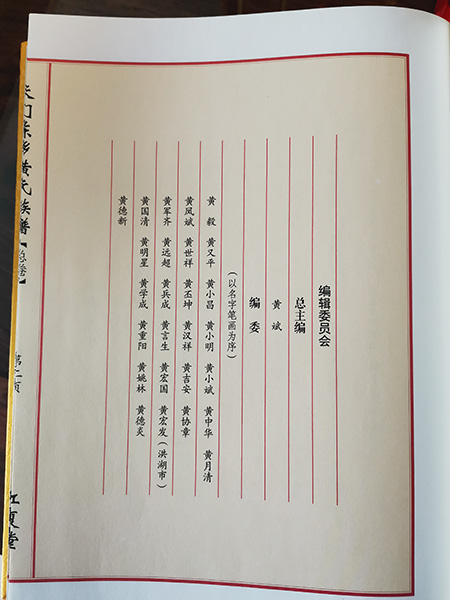 编辑委员会
总主编
黄斌
编委
(以名字笔画为序)
黄毅 黄又平 黄小昌 黄小明 黄小斌 黄中华 黄月清
黄凤斌 黄世祥 黄丕坤 黄汉祥 黄吉安 黄协章
黄军齐 黄远超 黄兵成 黄言生 黄宏国 黄宏发(洪湖市)
黄国清 黄明星 黄学成 黄重阳 黄姚林 黄德炎
黄德新
黄氏族谱【总卷】
江夏堂